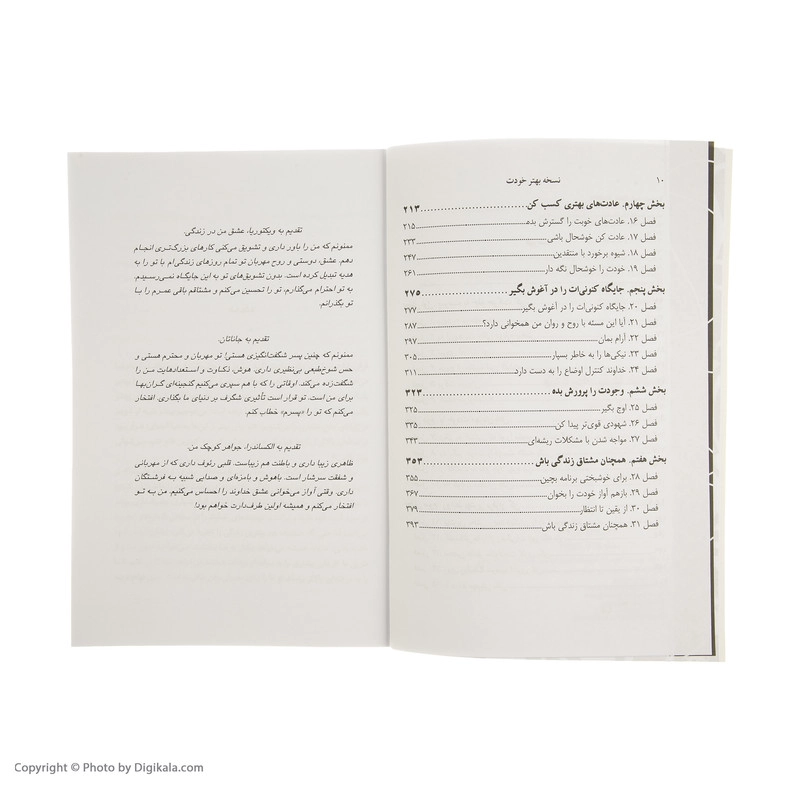 ۱۰
نسخه بهتر خودت
بخش چهارم. عادت‌های بهتری کسب کن ........................ ۲۱۳
فصل ۱۶. عادت‌های خوبت را گسترش بده ........................ ۲۱۵
فصل ۱۷. عادت کن خوشحال باشی ........................ ۲۳۳
فصل ۱۸. شیوه برخورد با منتقدین ........................ ۲۴۷
فصل ۱۹. خودت را خوشحال نگه دار ........................ ۲۶۱
بخش پنجم. جایگاه کنونی‌ات را در آغوش بگیر ........................ ۲۷۵
فصل ۲۰. جایگاه کنونی‌ات را در آغوش بگیر ........................ ۲۷۷
فصل ۲۱. آیا این مسئله با روح و روان من همخوانی دارد؟ ........................ ۲۸۷
فصل ۲۲. آرام بمان ........................ ۲۹۷
فصل ۲۳. نیکی‌ها را به خاطر بسپار ........................ ۳۰۵
فصل ۲۴. خداوند کنترل اوضاع را به دست دارد ........................ ۳۱۱
بخش ششم. وجودت را پرورش بده ........................ ۳۲۳
فصل ۲۵. اوج بگیر ........................ ۳۲۵
فصل ۲۶. شهودی قوی‌تر پیدا کن ........................ ۳۳۵
فصل ۲۷. مواجه شدن با مشکلات ریشه‌ای ........................ ۳۴۳
بخش هفتم. همچنان مشتاق زندگی باش ........................ ۳۵۳
فصل ۲۸. برای خوشبختی برنامه بچین ........................ ۳۵۵
فصل ۲۹. بازهم آواز خودت را بخوان ........................ ۳۶۷
فصل ۳۰. از یقین تا انتظار ........................ ۳۷۹
فصل ۳۱. همچنان مشتاق زندگی باش ........................ ۳۹۳
تقدیم به ویکتوریا، عشق من در زندگی.
ممنونم که من را باور داری و تشویق می‌کنی کارهای بزرگ‌تری انجام
دهم. عشق، دوستی و روح مهربان تو تمام روزهای زندگی‌ام با تو را به
هدیه تبدیل کرده است. بدون تشویق‌های تو به این جایگاه نمی‌رسیدم.
به تو احترام می‌گذارم، تو را تحسین می‌کنم و مشتاقم باقی عمرم را با
تو بگذرانم.
تقدیم به جاناتان.
ممنونم که چنین پسر شگفت‌انگیزی هستی! تو مهربان و محترم هستی و
حس شوخ‌طبعی بی‌نظیری داری. هوش، ذکاوت و استعدادهایت من را
شگفت‌زده می‌کند. اوقاتی را که با هم سپری می‌کنیم گنجینه‌ای گران‌بها
برای من است. تو قرار است تأثیری شگرف بر دنیای ما بگذاری. افتخار
می‌کنم که تو را «پسرم» خطاب کنم.
تقدیم به الکساندرا، جواهر کوچک من.
ظاهری زیبا داری و باطنت هم زیباست. قلبی رئوف داری که از مهربانی
و شفقت سرشار است. باهوش و بامزه‌ای و صدایی شبیه به فرشتگان
داری. وقتی آواز می‌خوانی عشق خداوند را احساس می‌کنیم. من به تو
افتخار می‌کنم و همیشه اولین طرف‌دارت خواهم بود!
Copyright © Photo by Digikala.com